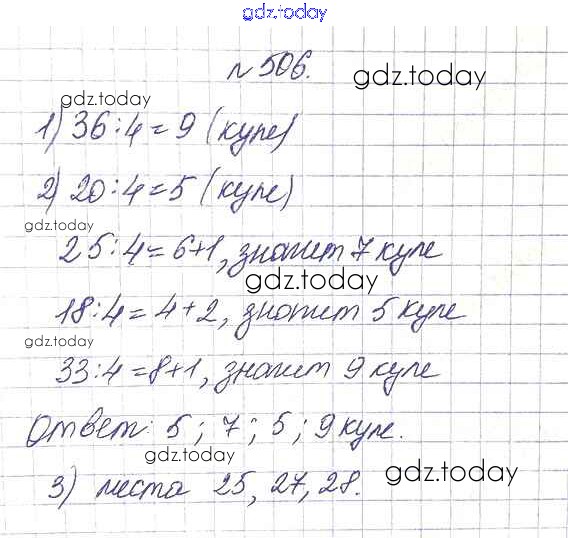 gdz.today
№ 506.
gdz.today
gdz.today
1) 36:4=9 (купе)
2) 20:4=5 (купе)
gdz.today
25:4=6+1, значит 7 купе
gdz.today
18:4=4+2, значит 5 купе
gdz.today
33:4=8+1, значит 9 купе
Ответ: 5; 7; 5; 9 купе.
gdz.today
gdz.today
3) места 25, 27, 28.